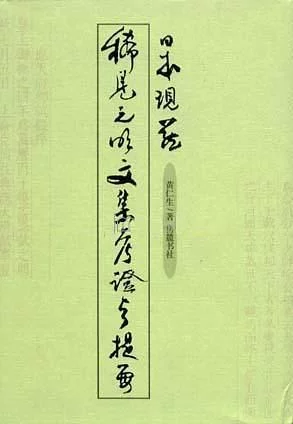 日本现藏
稀见元明文集考證与提要
黄仁生／著 岳麓书社